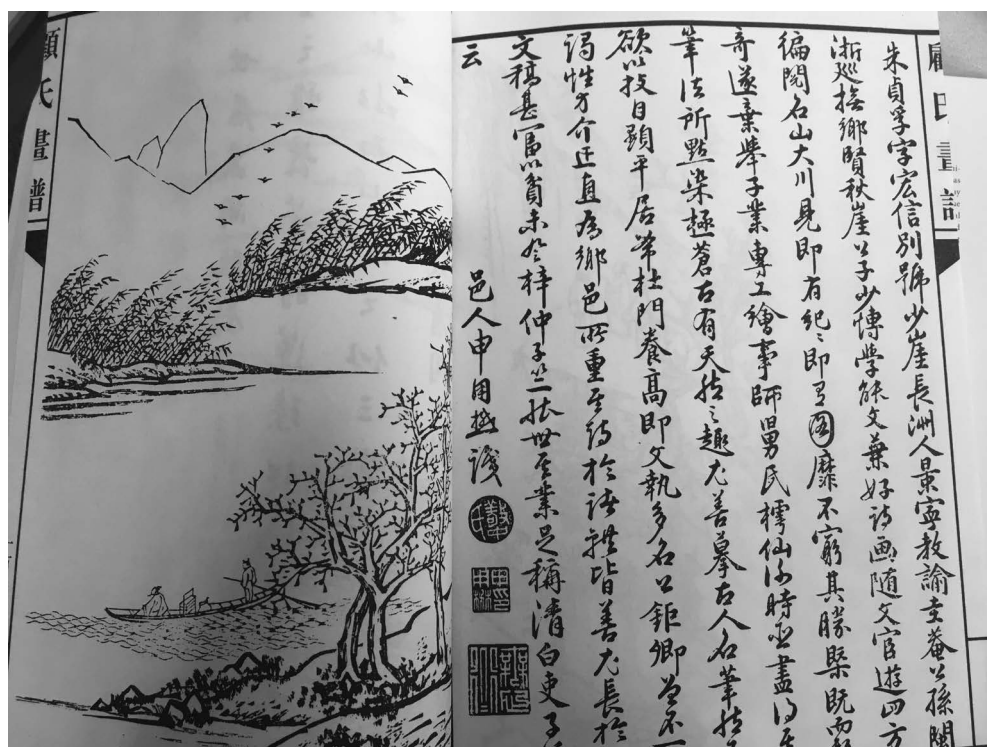 顧氏畫譜
朱貞孚字宏信別號少崖長洲人景寧教諭主菴公孫閩
浙巡撫鄉賢秋崖公子少博學能文兼好詩画随父宦遊四方
徧閱名山大川見即有紀〻即有圖靡不窮其勝槩既而
奇遂棄舉子業專工繪事師舅氏樗仙時臣盡得其
筆法所點染極蒼古有天然之趣尤善摹古人名筆
欲以投目顯平居常杜門養高即父執多名公鉅卿並不一
謁性方介迂直為鄉邑所重至詩於諸體皆善尤長於
文稿甚富以貧未登梓仲子世其業足稱清白吏子
云
邑人申用懋識
顧氏畫譜